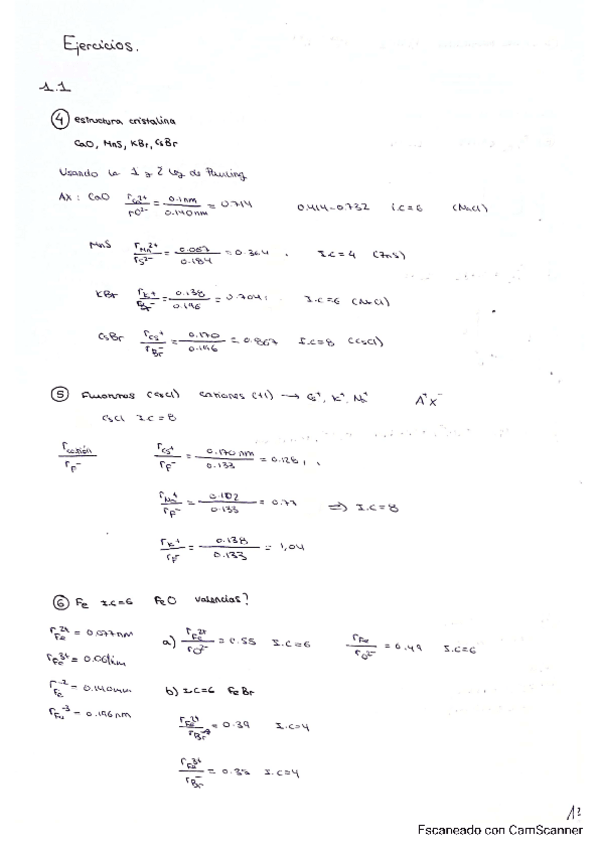 Ejercicios.
1.1
④ estructura cristalina
CaO, MnS, KBr, CsBr
Usando la 1 y 2 ley de Pauling
AX : CaO r Ca²⁺ / r O²⁻ = 0.1nm / 0.140nm = 0.714 0.414-0.732 i.c=6 (NaCl)
MnS r Mn²⁺ / r S²⁻ = 0.067 / 0.184 = 0.364 . I.C=4 (ZnS)
KBr r K⁺ / r Br⁻ = 0.138 / 0.196 = 0.7041 I.C=6 (NaCl)
CsBr r Cs⁺ / r Br⁻ = 0.170 / 0.196 = 0.867 I.C=8 (CsCl)
⑤ (CsCl) cationes (+1) → Cs⁺, K⁺, Na⁺ A⁺X⁻
CsCl I.C=8
r catión / r F⁻ r Cs⁺ / r F⁻ = 0.170 nm / 0.133 = 0.128
r Na⁺ / r F⁻ = 0.102 / 0.133 = 0.77 ⇒ I.C=8
r K⁺ / r F⁻ = 0.138 / 0.133 = 1,04
⑥ Fe I.C=6 FeO valencias?
r Fe²⁺ = 0.077nm a) r Fe²⁺ / r O²⁻ = 0.55 I.C=6 r Fe / r O²⁻ = 0.49 I.C=6
r Fe³⁺ =
r Fe⁻² = 0.140nm b) I.C=6 FeBr
⁻³ = 0.196nm
r Fe²⁺ / r Br⁻ = 0.39 I.C=4
r Fe³⁺ / r Br⁻ = 0.35 I.C=4
Escaneado con CamScanner